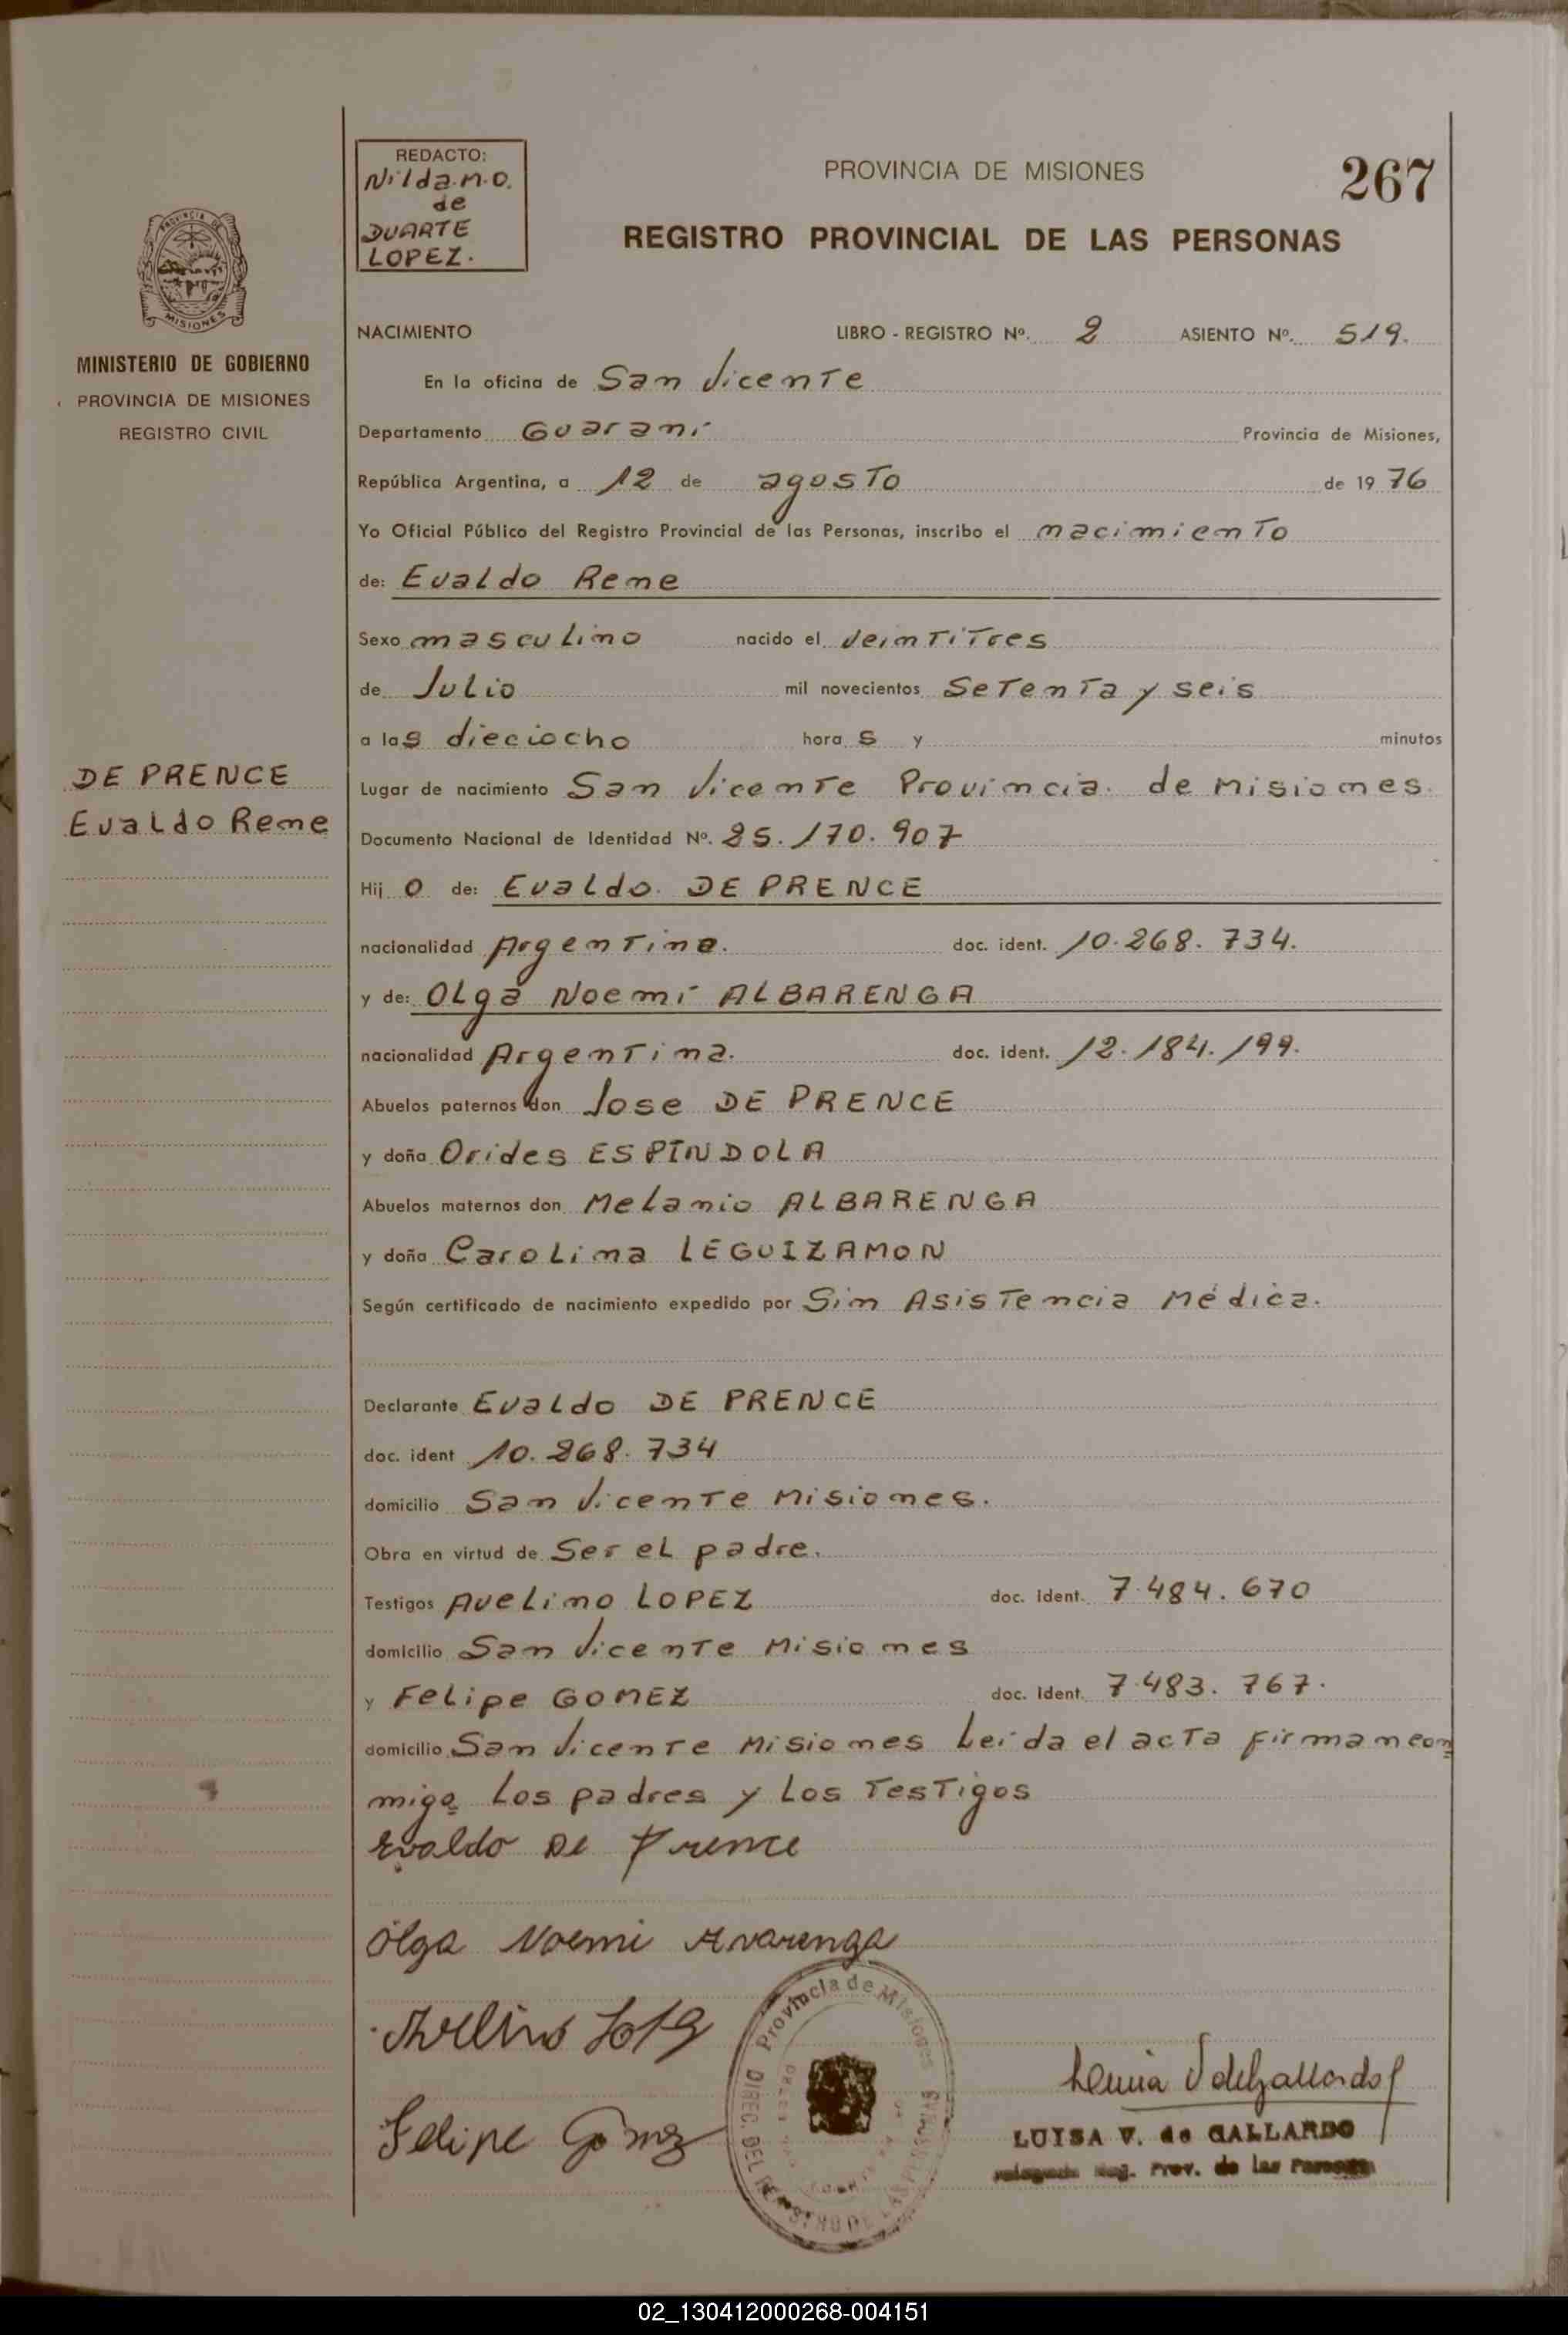 REDACTO:
Nilda.n.o.
de
DUARTE
LOPEZ.
PROVINCIA DE MISIONES
267
REGISTRO PROVINCIAL DE LAS PERSONAS
PROVINCIA DE
MISIONES
MINISTERIO DE GOBIERNO
PROVINCIA DE MISIONES
REGISTRO CIVIL
NACIMIENTO LIBRO - REGISTRO Nº. 2 ASIENTO Nº. 519.
En la oficina de San Vicente
Departamento Guaraní Provincia de Misiones,
República Argentina, a 12 de agosto de 19 76
Yo Oficial Público del Registro Provincial de las Personas, inscribo el nacimiento
de: Evaldo Rene
Sexo masculino nacido el veintitres
de Julio mil novecientos setenta y seis
a las dieciocho horas y minutos
DE PRENCE
Evaldo Rene
Lugar de nacimiento San Vicente Provincia de Misiones.
Documento Nacional de Identidad Nº. 25.170.907
Hijo de: Evaldo DE PRENCE
nacionalidad Argentina. doc. ident. 10.268.734.
y de: Olga Noemí ALBARENGA
nacionalidad Argentina. doc. ident. 12.184.199.
Abuelos paternos don Jose DE PRENCE
y doña Orides ESPÍNDOLA
Abuelos maternos don Melanio ALBARENGA
y doña Carolina LEGUIZAMON
Según certificado de nacimiento expedido por Sin Asistencia Médica.
Declarante Evaldo DE PRENCE
doc. ident 10.268.734
domicilio San Vicente Misiones.
Obra en virtud de Ser el padre.
Testigos Avelino LOPEZ doc. ident. 7.484.670
domicilio San Vicente Misiones
y Felipe GOMEZ doc. ident. 7.483.767.
domicilio San Vicente Misiones Leída el acta firman con
migo los padres y los testigos
Evaldo De Prence
Olga Noemi Avarenga
Avelino
Felipe Gomez
Provincia de Misiones
DIREC. DEL REGISTRO DE LAS PERSONAS
LUISA V. de GALLARDO
Reg. Prov. de las Personas
02_130412000268-004151